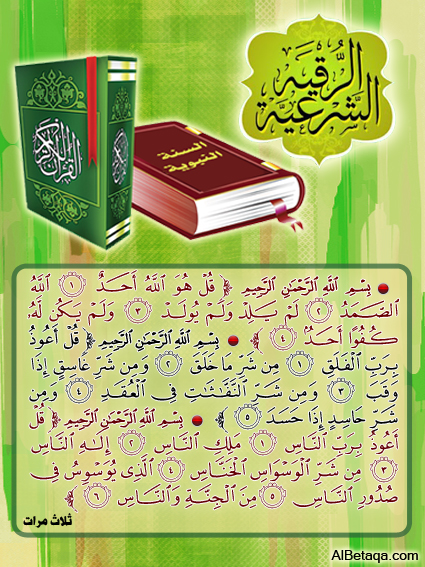 الرُّقية
الشرعية
القرآن الكريم
السنة
النبوية
● بِسْمِ ٱللَّهِ ٱلرَّحْمَٰنِ ٱلرَّحِيمِ ﴿ قُلْ هُوَ ٱللَّهُ أَحَدٌ ١ ٱللَّهُ
ٱلصَّمَدُ ٢ لَمْ يَلِدْ وَلَمْ يُولَدْ ٣ وَلَمْ يَكُن لَّهُۥ
كُفُوًا أَحَدٌۢ ٤ ﴾ ● بِسْمِ ٱللَّهِ ٱلرَّحْمَٰنِ ٱلرَّحِيمِ ﴿ قُلْ أَعُوذُ
بِرَبِّ ٱلْفَلَقِ ١ مِن شَرِّ مَا خَلَقَ ٢ وَمِن شَرِّ غَاسِقٍ إِذَا
وَقَبَ ٣ وَمِن شَرِّ ٱلنَّفَّٰثَٰتِ فِى ٱلْعُقَدِ ٤ وَمِن
شَرِّ حَاسِدٍ إِذَا حَسَدَ ٥ ﴾ ● بِسْمِ ٱللَّهِ ٱلرَّحْمَٰنِ ٱلرَّحِيمِ ﴿ قُلْ
أَعُوذُ بِرَبِّ ٱلنَّاسِ ١ مَلِكِ ٱلنَّاسِ ٢ إِلَٰهِ ٱلنَّاسِ
٣ مِن شَرِّ ٱلْوَسْوَاسِ ٱلْخَنَّاسِ ٤ ٱلَّذِى يُوَسْوِسُ فِى
صُدُورِ ٱلنَّاسِ ٥ مِنَ ٱلْجِنَّةِ وَٱلنَّاسِ ٦ ﴾
ثلاث مرات
AlBetaqa.com